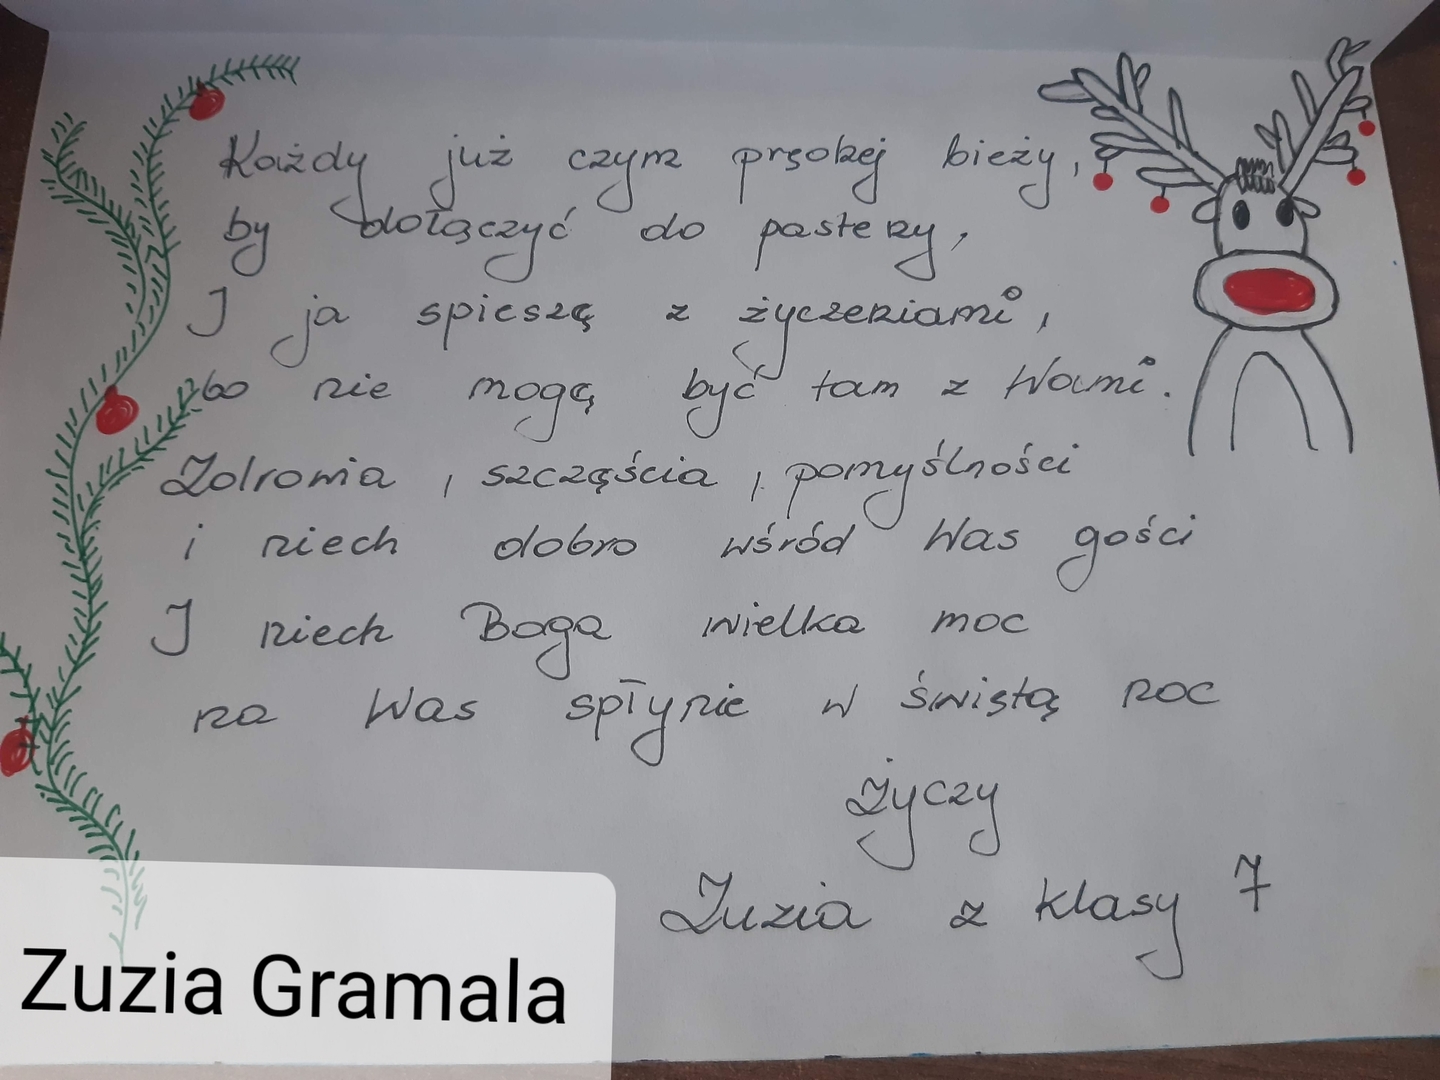 Każdy już czym prędzej bieży,
by dołączyć do pasterzy,
I ja spieszę z życzeniami,
bo nie mogę być tam z Wami.
Zdrowia, szczęścia, pomyślności
i niech dobro wśród Was gości
I niech Boga wielka moc
na Was spłynie w świętą noc
Życzy
Zuzia z klasy 7
Zuzia Gramala